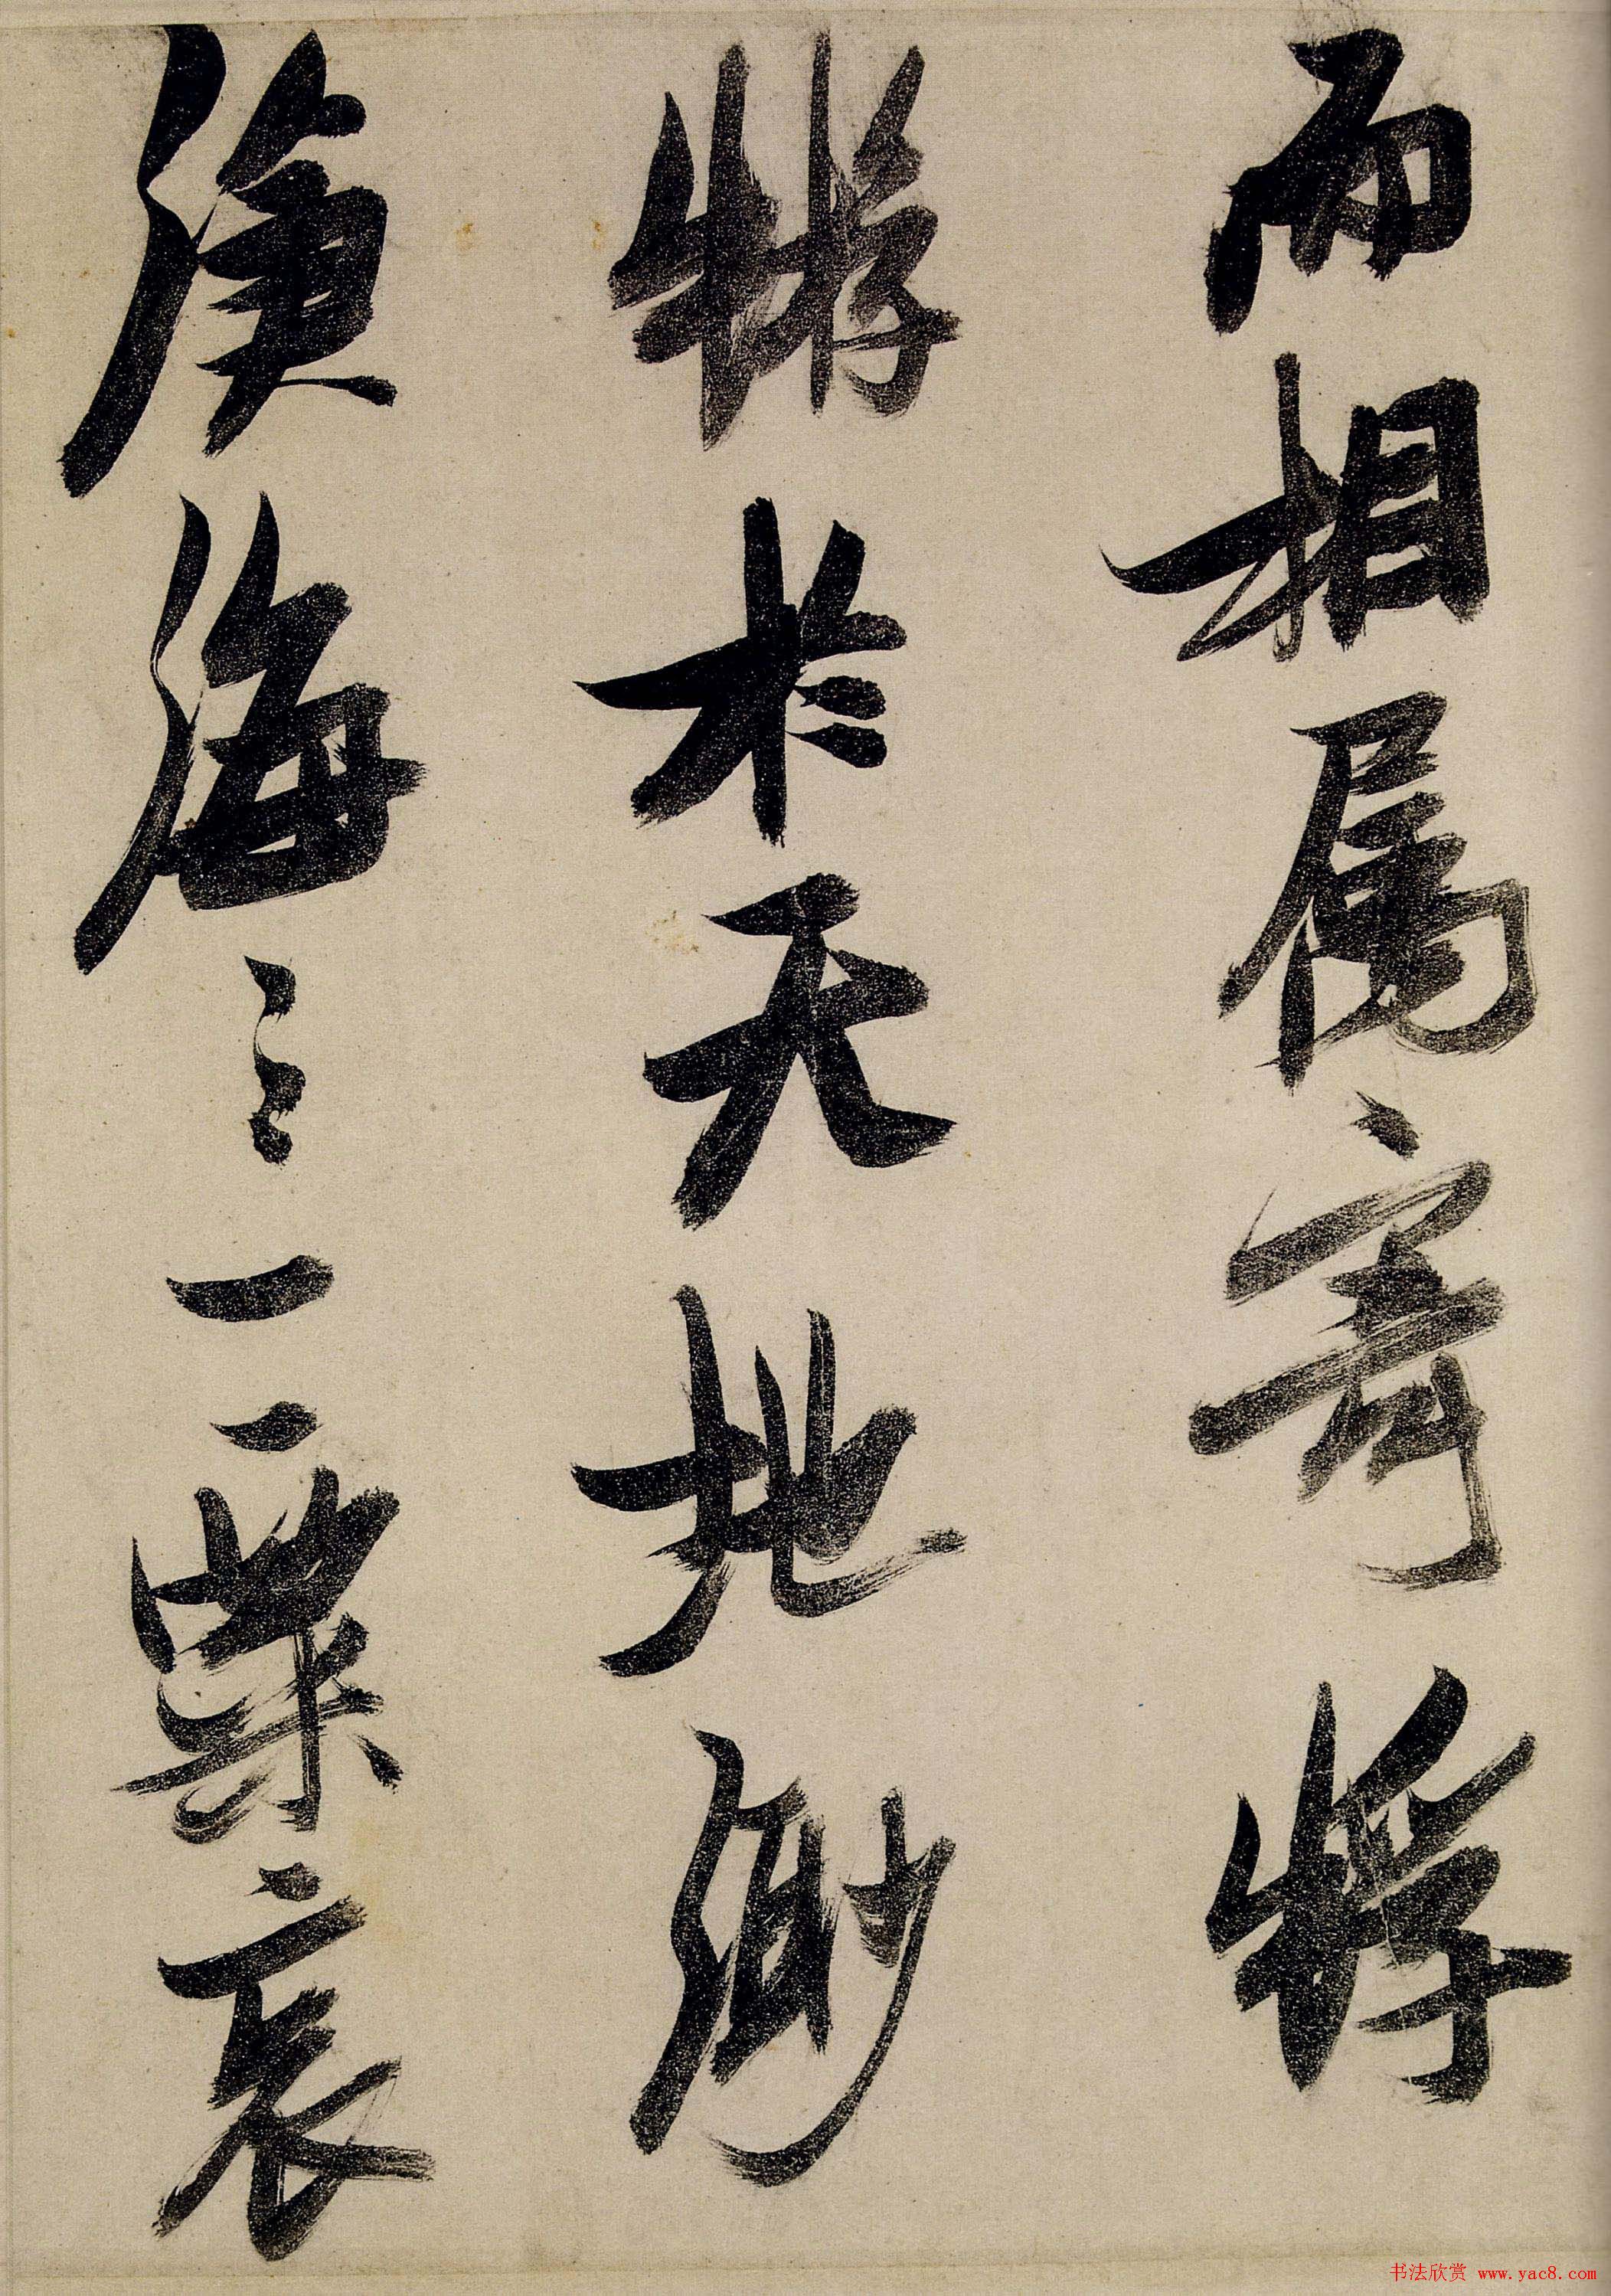 而相属寄蜉
蝣於天地渺
滄海之一粟哀
书法欣赏 www.yac8.com